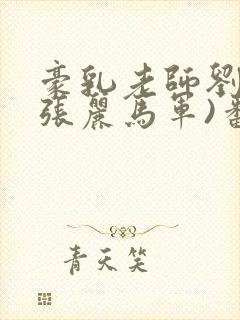 豪乳老師劉
張麗馬軍)
青天笑